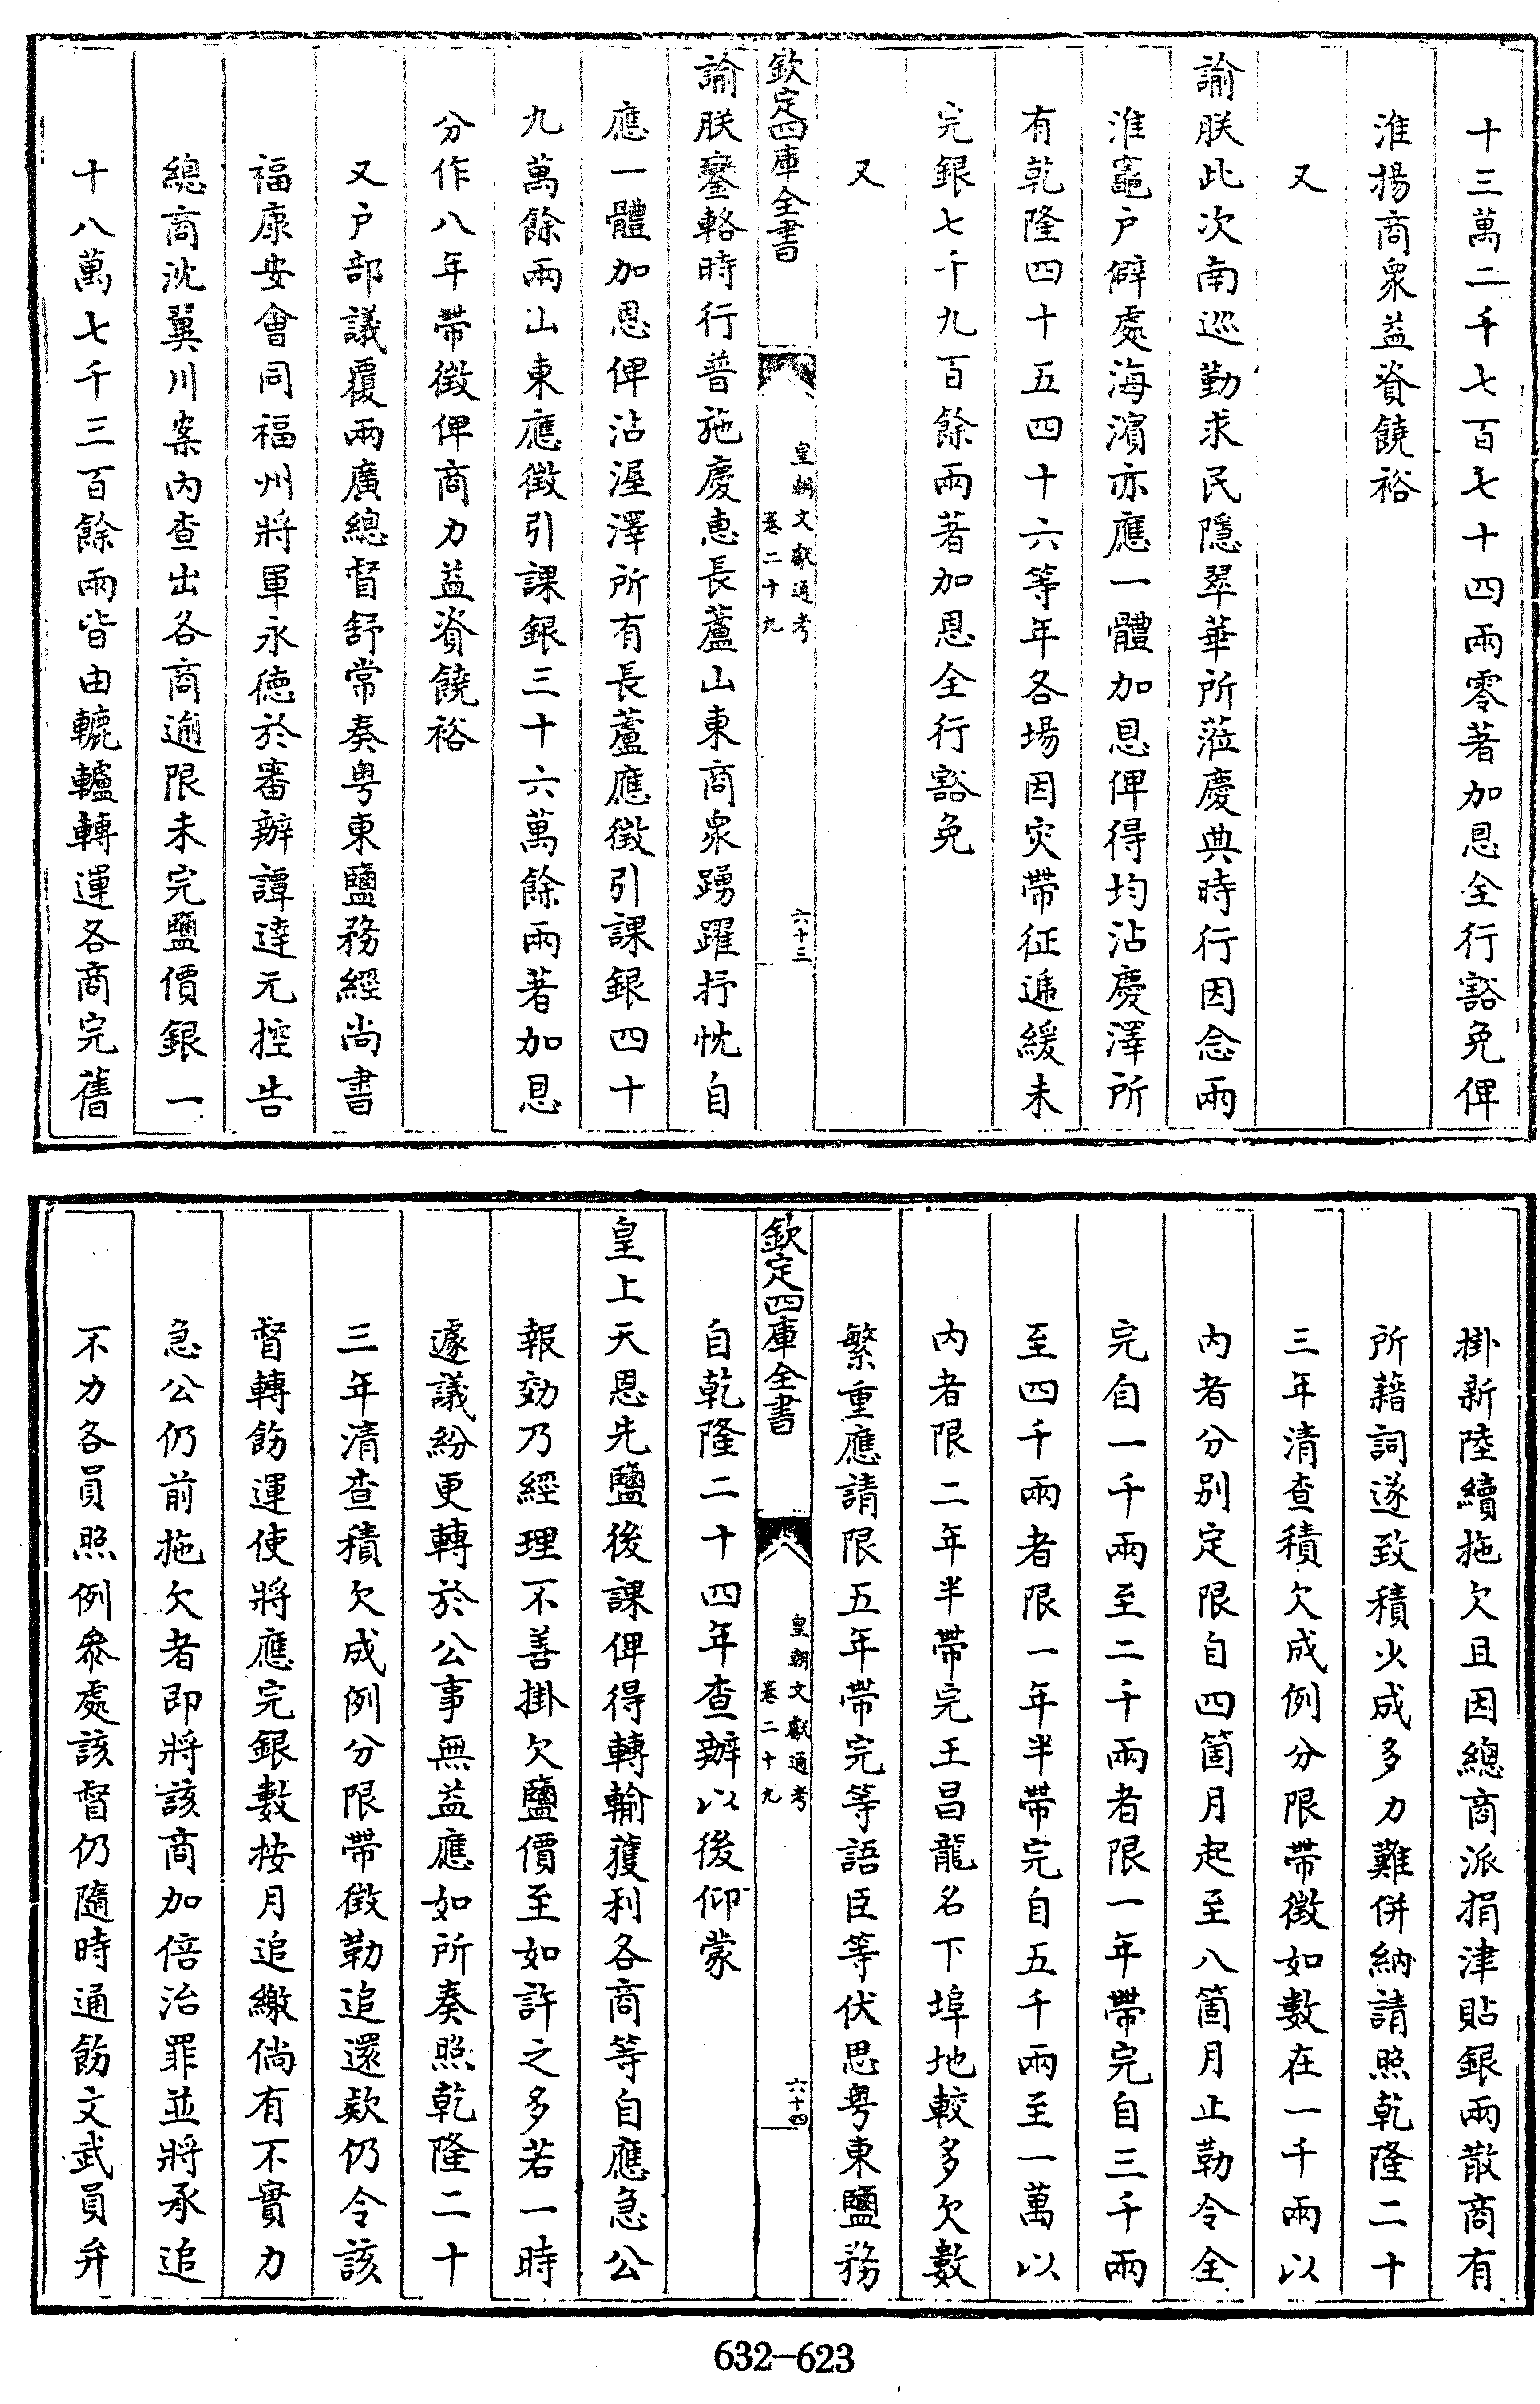 十三萬二千七百七十四兩零著加恩全行豁免俾
淮揚商衆益資饒裕
又
諭朕此次南巡勤求民隱翠華所蒞慶典時行因念兩
淮竈户僻處海濵亦應一體加恩俾得均沾慶澤所
有乾隆四十五四十六等年各場因灾帶征遞緩未
完銀七千九百餘兩著加恩全行豁免
又
欽定四庫全書
皇朝文獻通考
卷二十九
六十三
諭朕鑾輅時行普施慶惠長蘆山東商衆踴躍抒忱自
應一體加恩俾沾渥澤所有長蘆應徴引課銀四十
九萬餘兩山東應徴引課銀三十六萬餘兩著加恩
分作八年帶徴俾商力益資饒裕
又户部議覆兩廣總督舒常奏粤東鹽務經尚書
福康安會同福州將軍永徳於審辦譚達元控告
總商沈翼川案内查出各商逾限未完鹽價銀一
十八萬七千三百餘兩皆由轆轤轉運各商完舊
掛新陸續拖欠且因總商派捐津貼銀兩散商有
所藉詞遂致積火成多力難併納請照乾隆二十
三年清查積欠成例分限帶徴如數在一千兩以
内者分别定限自四箇月起至八箇月止勒令全
完自一千兩至二千兩者限一年帶完自三千兩
至四千兩者限一年半帶完自五千兩至一萬以
内者限二年半帶完王昌龍名下埠地較多欠數
繁重應請限五年帶完等語臣等伏思粤東鹽務
欽定四庫全書
皇朝文獻通考
卷二十九
六十四
自乾隆二十四年查辦以後仰蒙
皇上天恩先鹽後課俾得轉輸獲利各商等自應急公
報効乃經理不善掛欠鹽價至如許之多若一時
遽議紛更轉於公事無益應如所奏照乾隆二十
三年清查積欠成例分限帶徴勒追還欵仍令該
督轉飭運使將應完銀數按月追繳倘有不實力
急公仍前拖欠者即將該商加倍治罪並將承追
不力各員照例叅處該督仍隨時通飭文武員弁
632—623